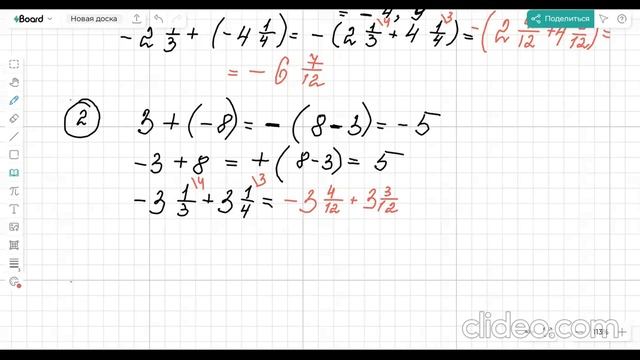 sBoard Новая доска Поделиться
= - 4, 9
- 2 1/3 + (- 4 1/4) = - (2 1/3 \4 + 4 1/4 \3) = - (2 4/12 + 4 3/12) =
= - 6 7/12
2 3 + (- 8) = - (8 - 3) = - 5
- 3 + 8 = + (8 - 3) = 5
- 3 1/3 \4 + 3 1/4 \3 = - 3 4/12 + 3 3/12
113%
clideo.com